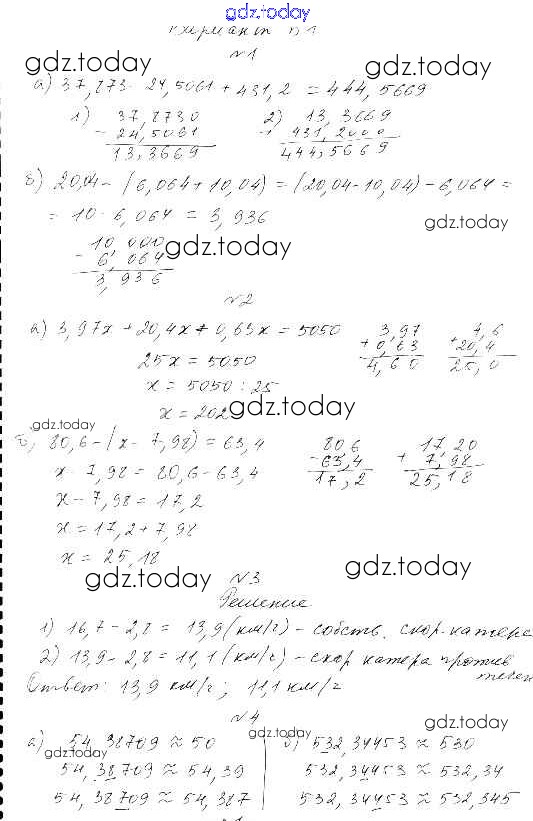 gdz.today
Вариант В1
№1
gdz.today gdz.today
а) 37,873 - 24,5061 + 431,2 = 444,5669
1) 37,8730 2) 13,3669
- 24,5061 + 431,2000
13,3669 444,5669
б) 20,04 - (6,064 + 10,04) = (20,04 - 10,04) - 6,064 =
= 10 - 6,064 = 3,936
gdz.today
10,000
gdz.today
- 6,064
3,936
№2
а) 3,97x + 20,4x + 0,63x = 5050 3,97 4,6
+ 0,63 + 20,4
25x = 5050 4,60 25,0
x = 5050 : 25
x = 202
gdz.today
gdz.today
б) 80,6 - (x - 7,98) = 63,4 80,6 17,20
- 63,4 + 7,98
x - 7,98 = 80,6 - 63,4 17,2 25,18
x - 7,98 = 17,2
x = 17,2 + 7,98
x = 25,18
gdz.today gdz.today
№3
Решение
1) 16,7 - 2,8 = 13,9 (км/г) - собств. скор. катера
2) 13,9 - 2,8 = 11,1 (км/г) - скор катера против
течен
Ответ: 13,9 км/г; 11,1 км/г
№4
gdz.today gdz.today
а) 54,38709 ≈ 50 б) 532,34453 ≈ 530
gdz.today
54,38709 ≈ 54,39 532,34453 ≈ 532,34
54,38709 ≈ 54,387 532,34453 ≈ 532,345